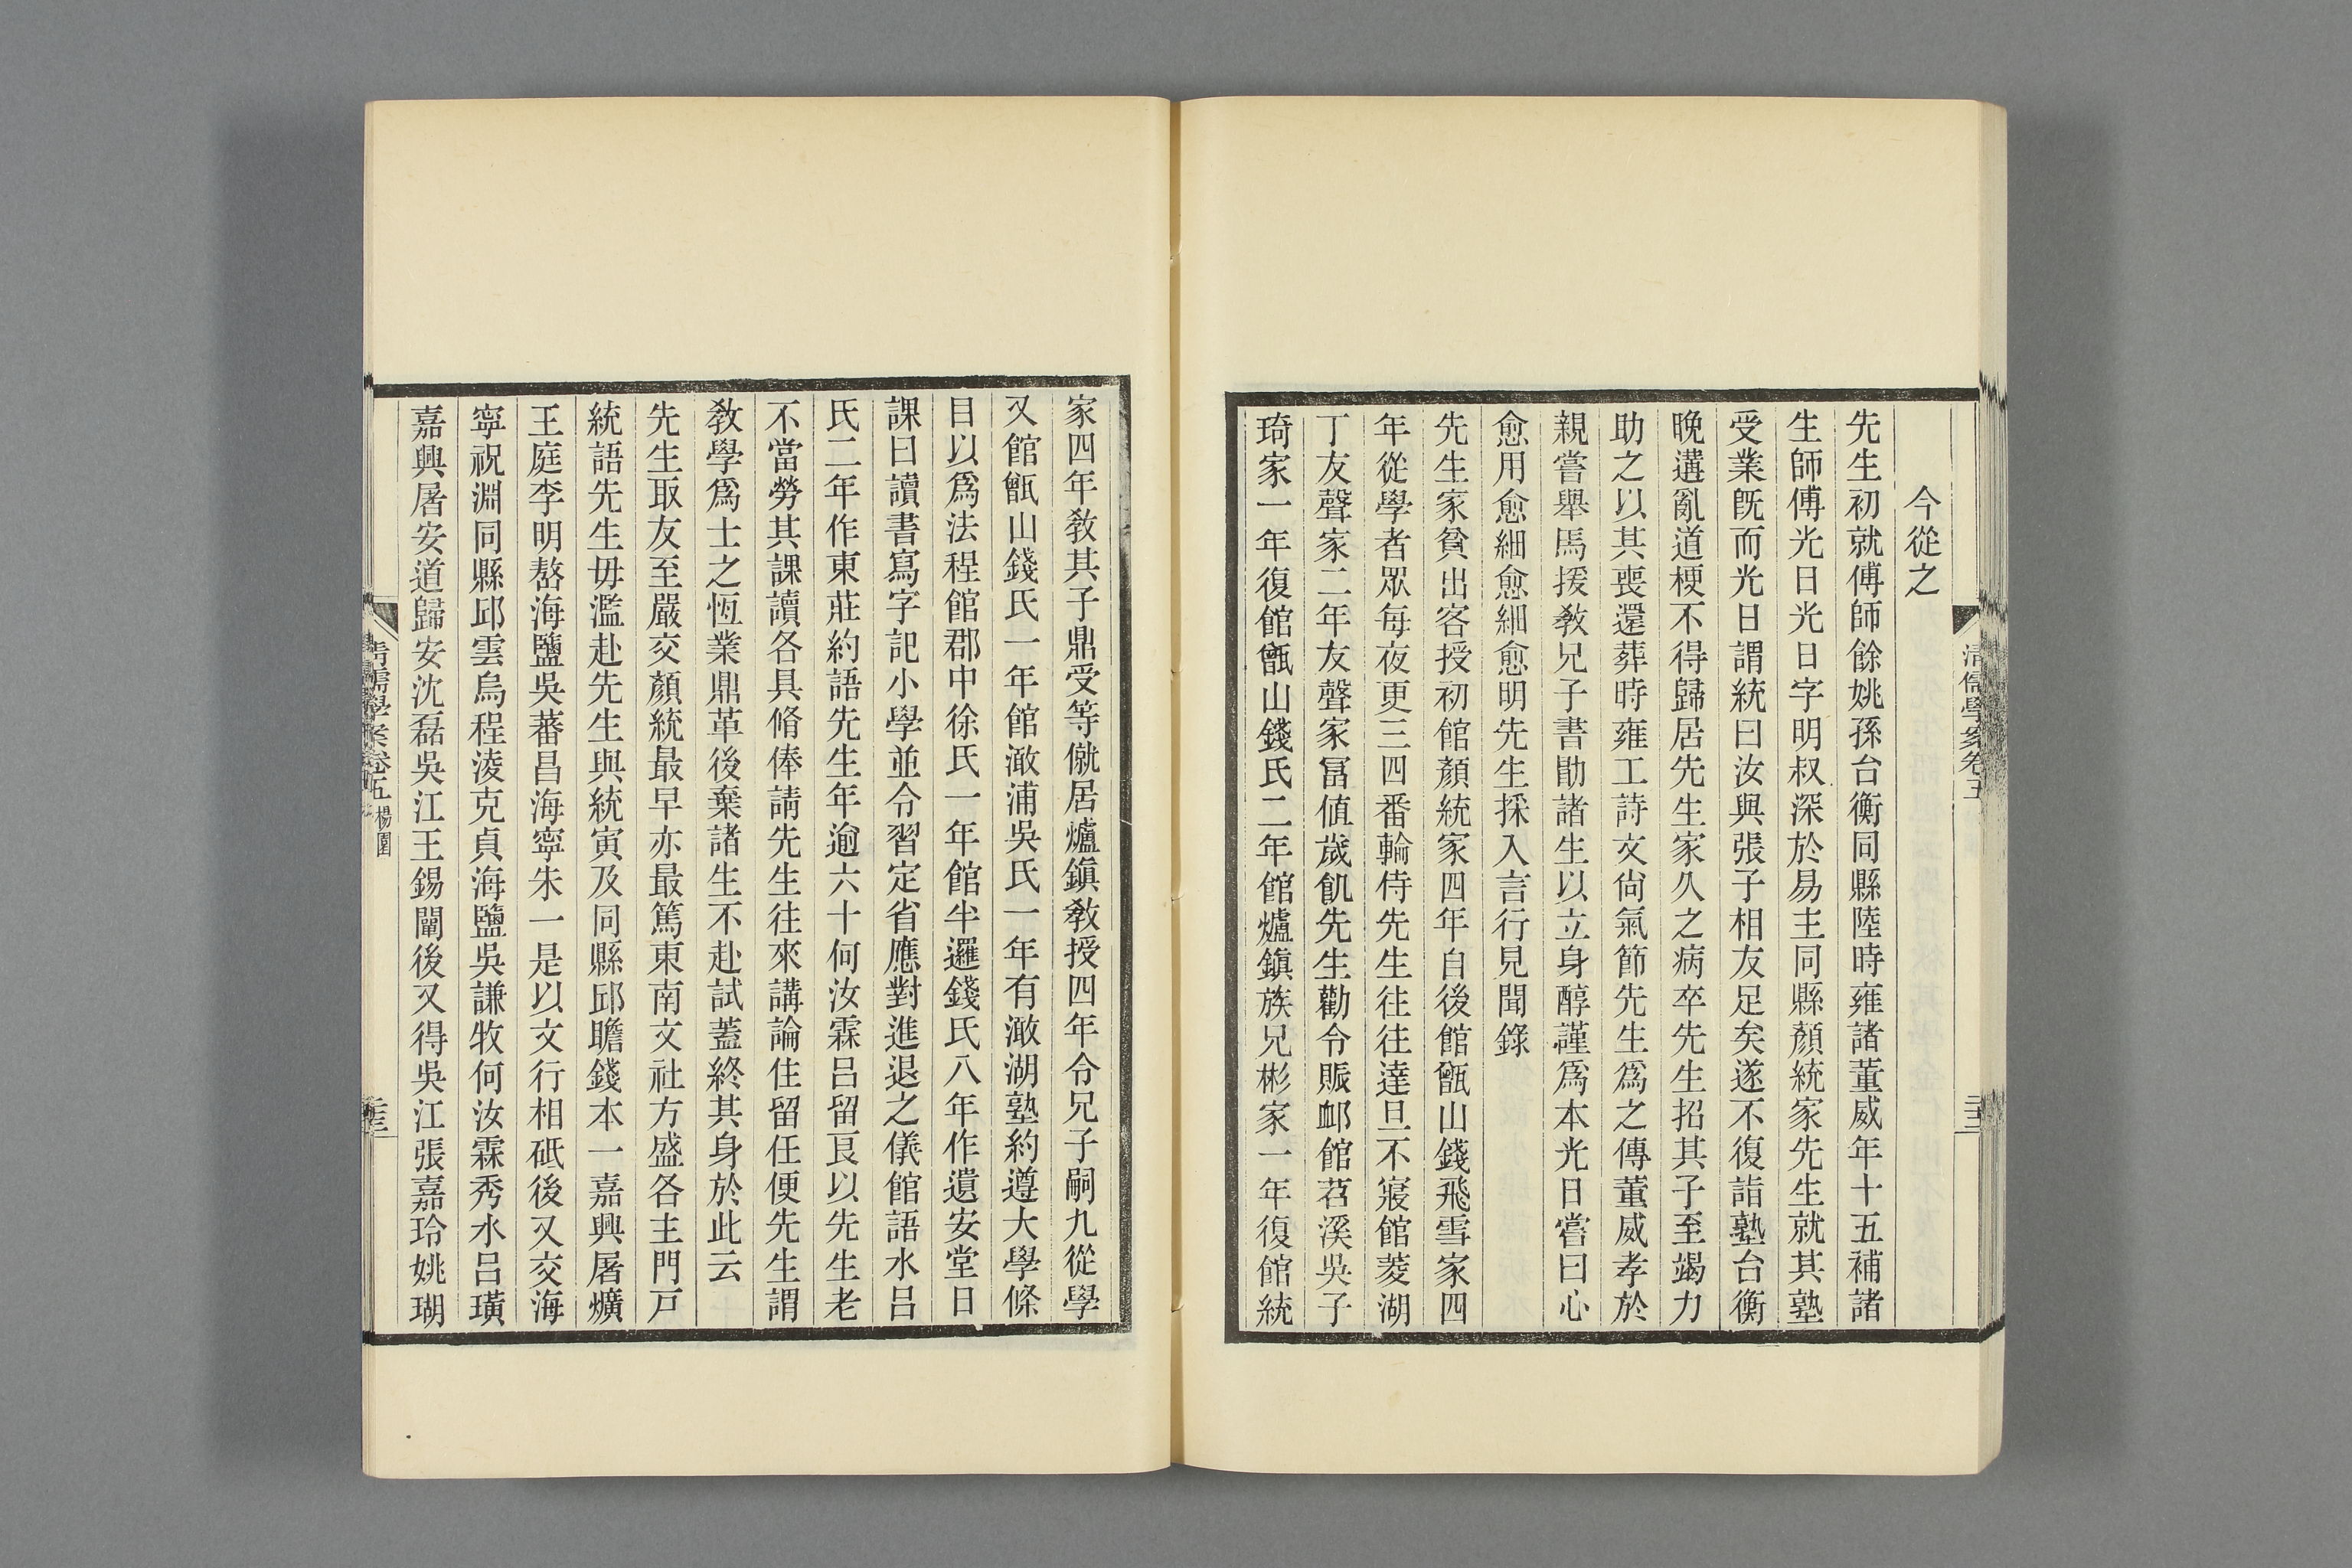 清儒學案卷五
今從之
先生初就傅師餘姚孫台衡同縣陸時雍諸董威年十五補諸
生師傅光日光日字明叔深於易主同縣顏統家先生就其塾
受業旣而光日謂統曰汝與張子相友足矣遂不復詣塾台衡
晚遘亂道梗不得歸居先生家久之病卒先生招其子至竭力
助之以其喪還葬時雍工詩文尙氣節先生爲之傳董威孝於
親嘗舉馬援敎兄子書勖諸生以立身醇謹爲本光日嘗曰心
愈用愈細愈細愈明先生採入言行見聞錄
先生家貧出客授初館顏統家四年自後館甑山錢飛雪家四
年從學者眾每夜更三四番輪侍先生往往達旦不寢館菱湖
丁友聲家二年友聲家冨値歲飢先生勸令賑卹館苕溪吳子
琦家一年復館甑山錢氏二年館爐鎭族兄彬家一年復館統
家四年敎其子鼎受等僦居爐鎭敎授四年令兄子嗣九從學
又館甑山錢氏一年館澉浦吳氏一年有澉湖塾約遵大學條
目以爲法程館郡中徐氏一年館半邏錢氏八年作遺安堂日
課曰讀書寫字記小學並令習定省應對進退之儀館語水呂
氏二年作東莊約語先生年逾六十何汝霖呂留良以先生老
不當勞其課讀各具脩俸請先生往來講論住留任便先生謂
敎學爲士之恆業鼎革後棄諸生不赴試蓋終其身於此云
先生取友至嚴交顏統最早亦最篤東南文社方盛各主門戸
統語先生毋濫赴先生與統寅及同縣邱瞻錢本一嘉興屠爌
王庭李明嶅海鹽吳蕃昌海寧朱一是以文行相砥後又交海
寧祝淵同縣邱雲烏程淩克貞海鹽吳謙牧何汝霖秀水呂璜
嘉興屠安道歸安沈磊吳江王錫闡後又得吳江張嘉玲姚瑚
清儒學案卷五 楊園